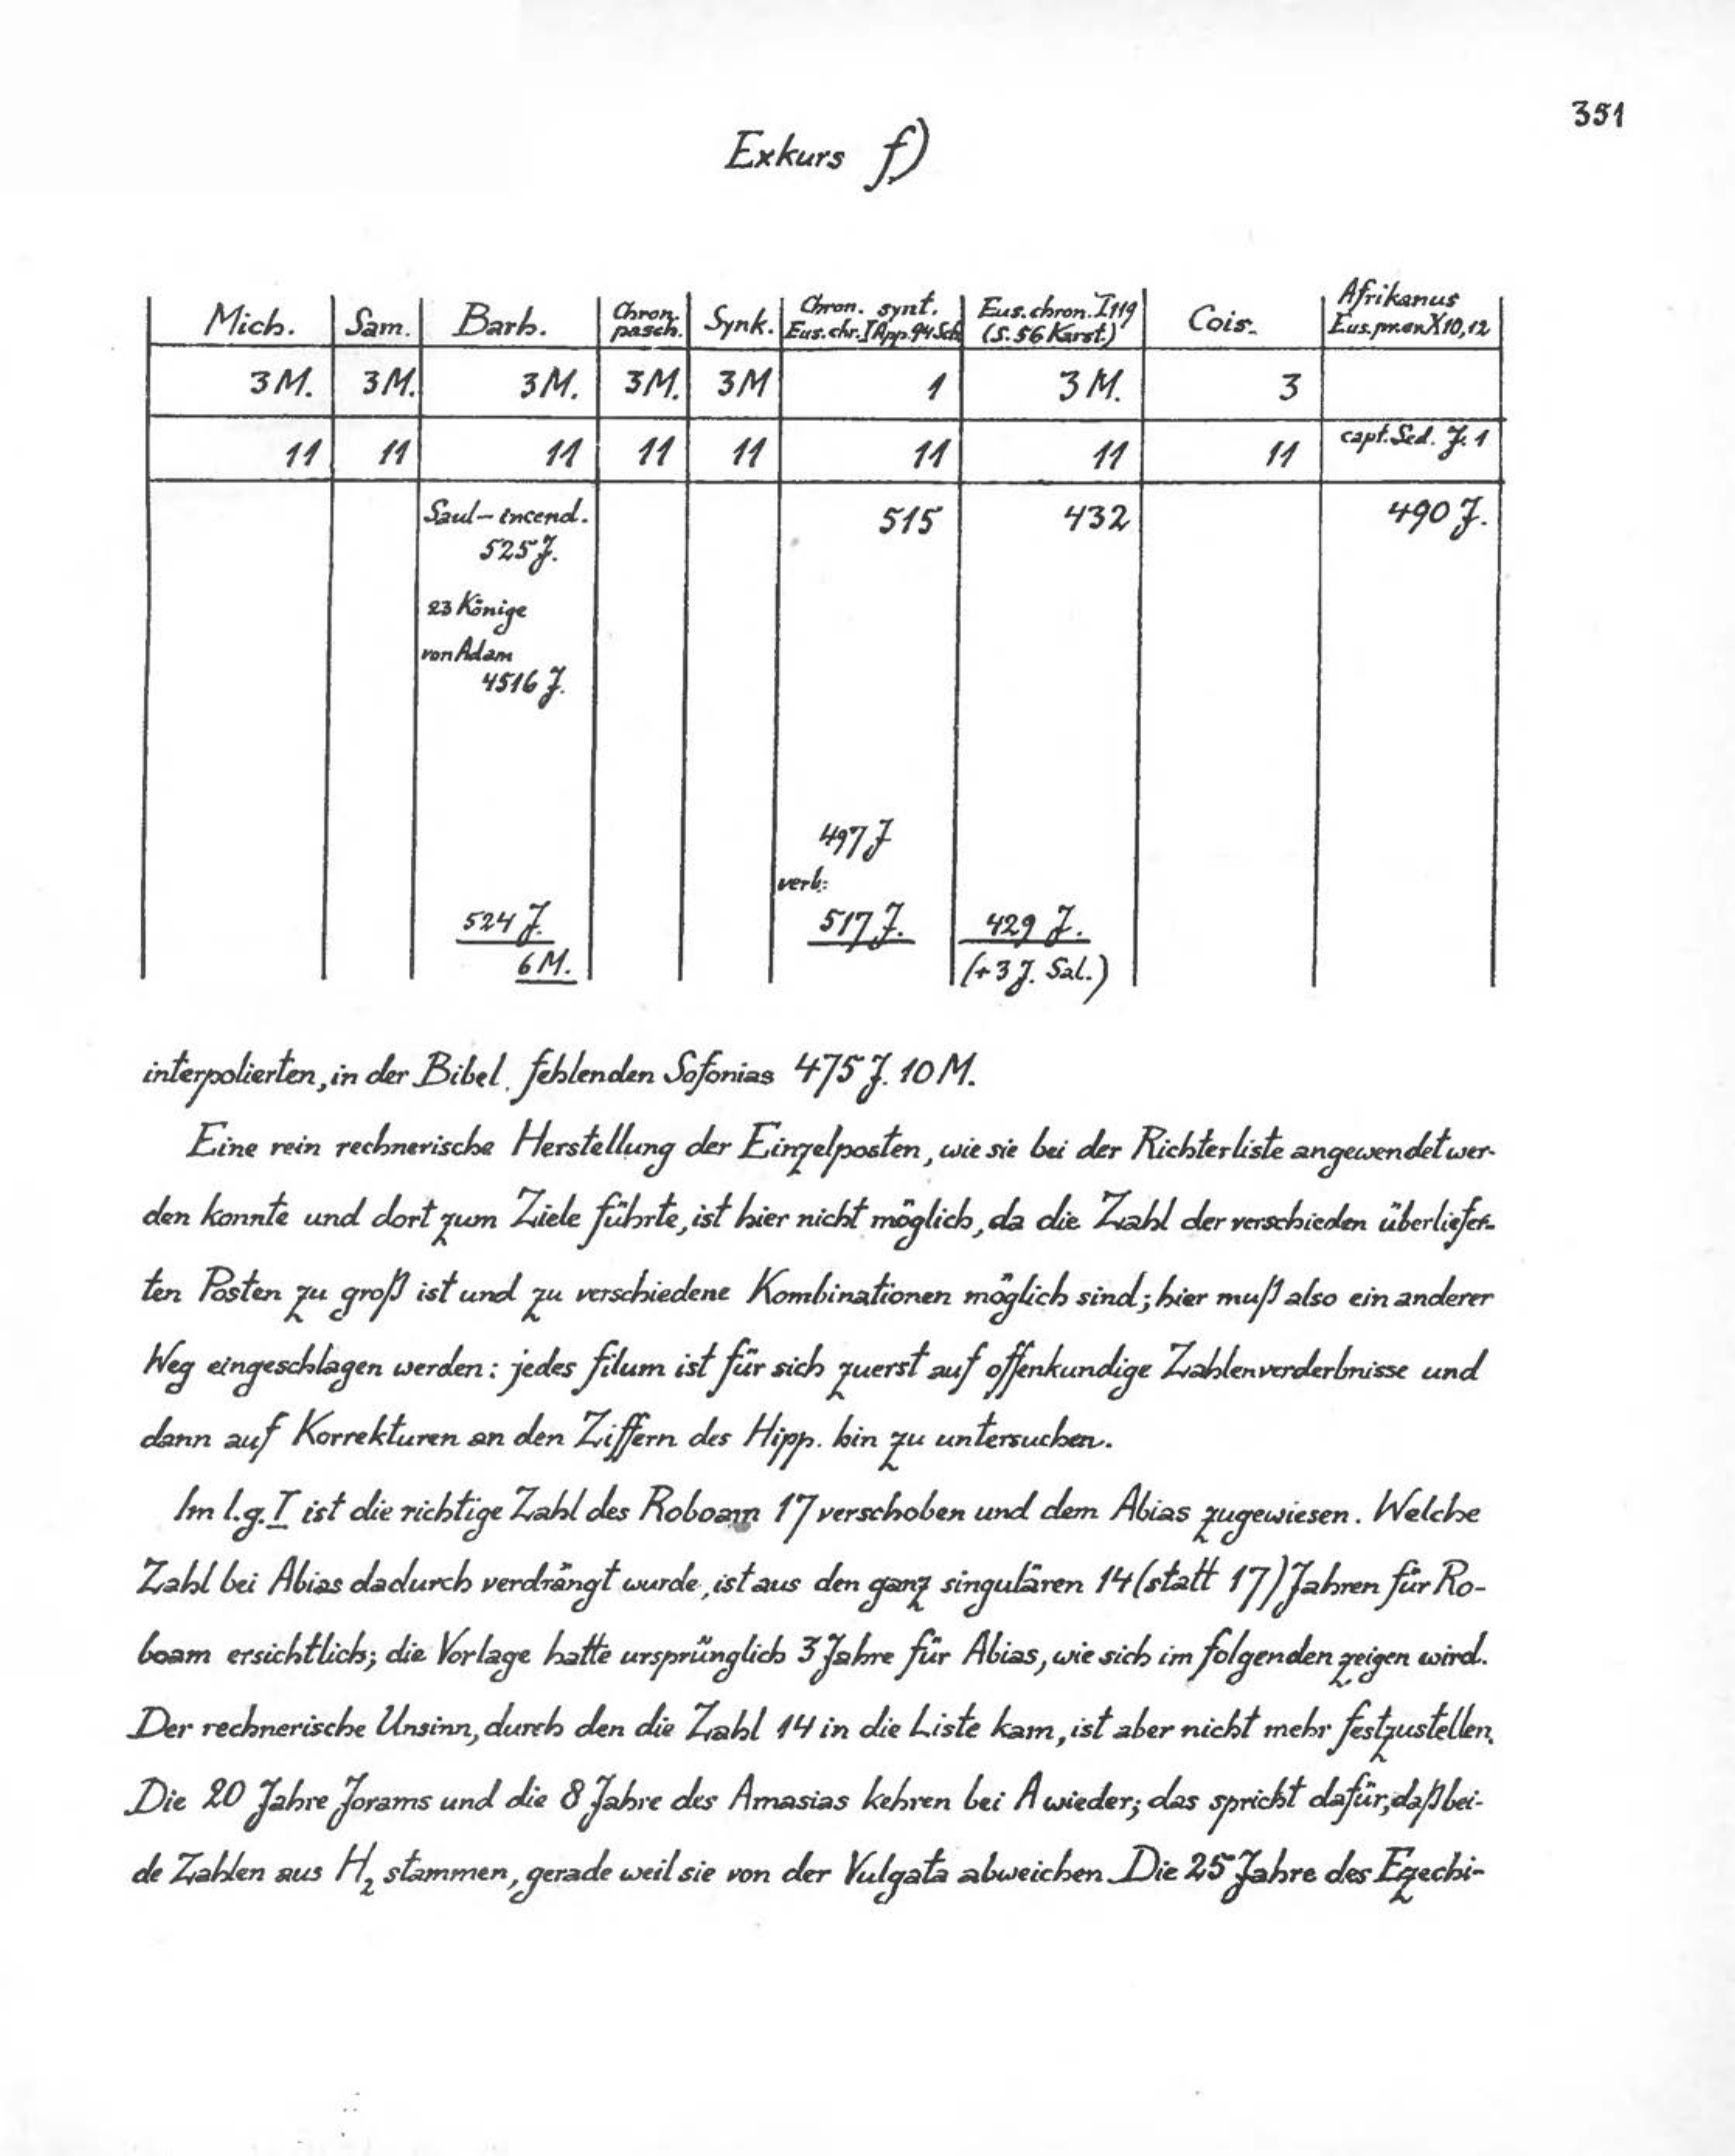 351
Exkurs f)
Mich. Sam. Barb. Chron. pasch. Synk. Chron. synt. Eus. chr. I App. 94 Sch. Eus. chron. I 119 (S. 56 Karst.) Cois. Afrikanus Eus. pr. ev. X 10, 12
3 M. 3 M. 3 M. 3 M. 3 M 1 3 M. 3
11 11 11 11 11 11 11 11 capt. Sed. J. 1
Saul – incend. 515 432 490 J.
525 J.
23 Könige
von Adam
4516 J.
497 J
verb:
524 J. 517 J. 429 J.
6 M. (+ 3 J. Sal.)
interpolierten, in der Bibel fehlenden Sofonias 475 J. 10 M.
Eine rein rechnerische Herstellung der Einzelposten, wie sie bei der Richterliste angewendet wer-
den konnte und dort zum Ziele führte, ist hier nicht möglich, da die Zahl der verschieden überliefer-
ten Posten zu groß ist und zu verschiedene Kombinationen möglich sind; hier muß also ein anderer
Weg eingeschlagen werden: jedes filum ist für sich zuerst auf offenkundige Zahlenverderbnisse und
dann auf Korrekturen an den Ziffern des Hipp. hin zu untersuchen.
Im l.g. I ist die richtige Zahl des Roboam 17 verschoben und dem Abias zugewiesen. Welche
Zahl bei Abias dadurch verdrängt wurde, ist aus den ganz singulären 14 (statt 17) Jahren für Ro-
boam ersichtlich; die Vorlage hatte ursprünglich 3 Jahre für Abias, wie sich im folgenden zeigen wird.
Der rechnerische Unsinn, durch den die Zahl 14 in die Liste kam, ist aber nicht mehr festzustellen.
Die 20 Jahre Jorams und die 8 Jahre des Amasias kehren bei A wieder; das spricht dafür, daß bei-
de Zahlen aus H₂ stammen, gerade weil sie von der Vulgata abweichen. Die 25 Jahre des Ezechi-